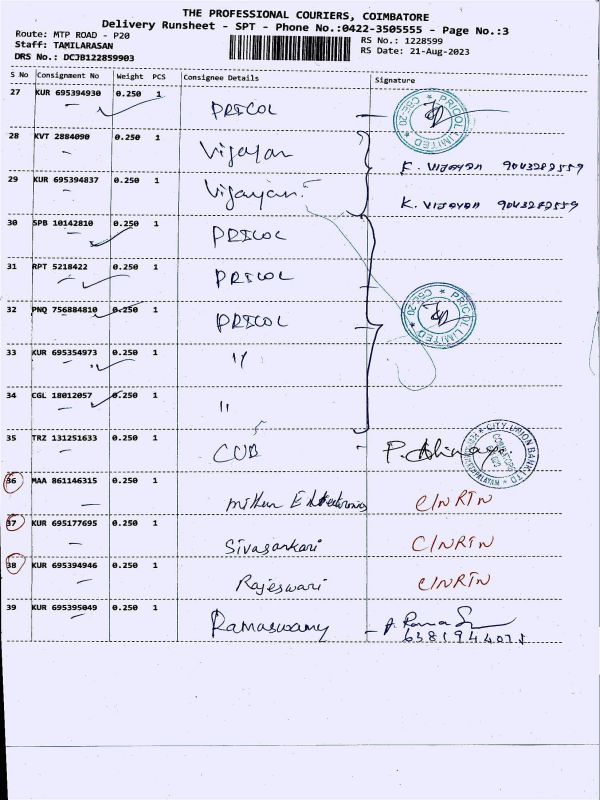 THE PROFESSIONAL COURIERS, COIMBATORE
Delivery Runsheet - SPT - Phone No.:0422-3505555 - Page No.:3
Route: MTP ROAD - P20
RS No.: 1228599
Staff: TAMILARASAN
RS Date: 21-Aug-2023
DRS No.: DCJB122859903
S No Consignment No Weight PCS Consignee Details Signature
27 KUR 695394930 0.250 1 PRICOL
PRICOL LIMITED ★ CBE-20 ★
28 KVT 2884090 0.250 1 Vijayan K. VIJAYAN 9043282559
29 KUR 695394837 0.250 1 Vijayan K. VIJAYAN 9043282559
30 SPB 10142810 0.250 1 PRICOL
31 RPT 5218422 0.250 1 PRICOL
32 PNQ 756884810 0.250 1 PRICOL
PRICOL LIMITED ★ CBE-20 ★
33 KUR 695354973 0.250 1 "
34 CGL 18012057 0.250 1 "
35 TRZ 131251633 0.250 1 CUB
CITY UNION BANK LTD
36 MAA 861146315 0.250 1 C/NRTN
37 KUR 695177695 0.250 1 Sivasankari C/NRTN
38 KUR 695394946 0.250 1 Rajeswari C/NRTN
39 KUR 695395049 0.250 1 Ramaswamy